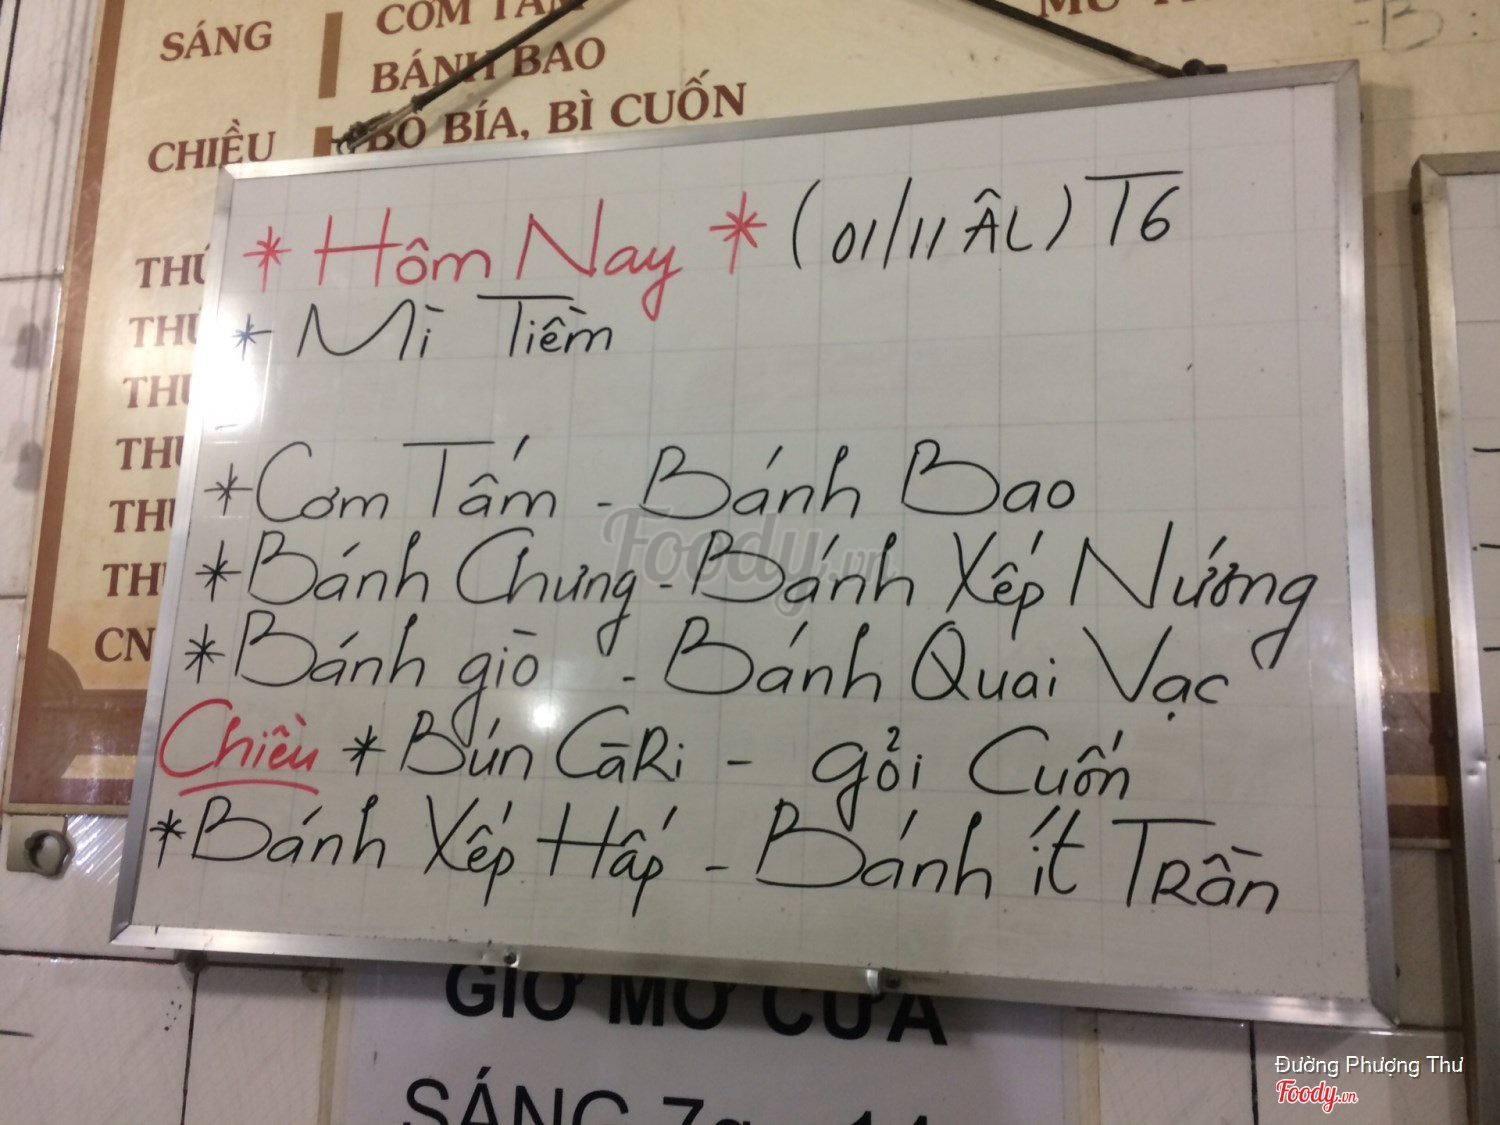 SÁNG
CƠM TẤM
BÁNH BAO
CHIỀU
BÒ BÍA, BÌ CUỐN
* Hôm Nay * (01/11 ÂL) T6
* Mì Tiềm
* Cơm Tấm - Bánh Bao
* Bánh Chưng - Bánh Xếp Nướng
* Bánh giò - Bánh Quai Vạc
Chiều * Bún CàRi - gỏi Cuốn
* Bánh Xếp Hấp - Bánh ít TRần
CN
GIỜ MỞ CỬA
SÁNG 7g
Foody.vn
Đường Phượng Thư
Foody.vn